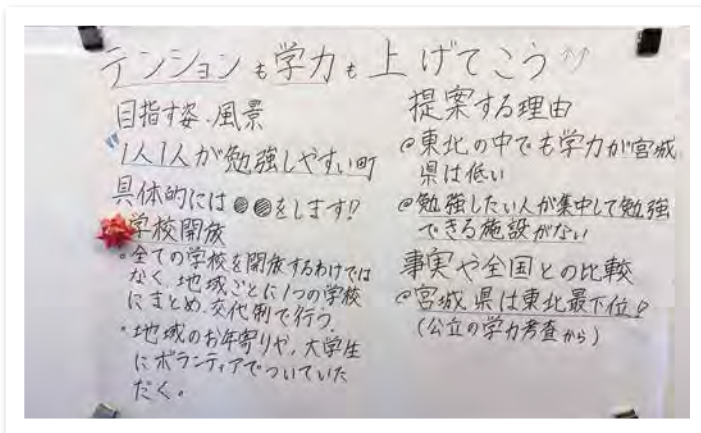 テンションも学力も上げてこう↑↑
目指す姿・風景
"1人1人が勉強しやすい町
具体的には●●をします!?
学校開放
・全ての学校を開放するわけでは
なく、地域ごとに1つの学校
にまとめ、交代制で行う。
・地域のお年寄りや、大学生
にボランティアでついていた
だく。
提案する理由
◎東北の中でも学力が宮城
県は低い
◎勉強したい人が集中して勉強
できる施設がない
事実や全国との比較
◎宮城県は東北最下位!
(公立の学力考査から)